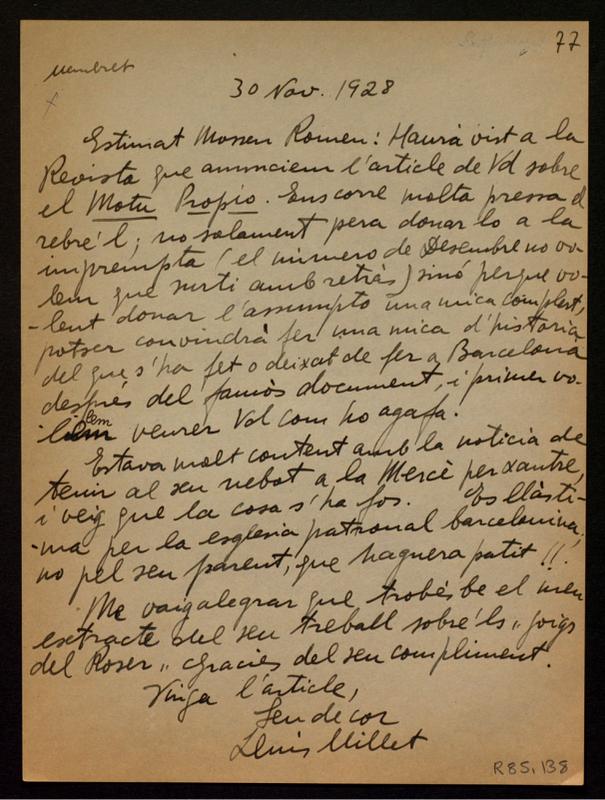 77
membret
x
30 Nov. 1928
Estimat Mossen Romeu: Haurà vist a la
Revista que anunciem l'article de Vd sobre
el Motu Propio. Ens corre molta pressa el
rebre'l; no solament pera donar lo a la
imprempta (el número de Desembre no vo-
lem que surti amb retràs) sinó perque vo-
-lent donar l'assumpto una mica complert,
potser convindrà fer una mica d'historia
del que s'ha fet o deixat de fer a Barcelona
després del famós document, i primer vo-
lem veurer Vd com ho agafa.
Estava molt content amb la noticia de
tenir al seu nebot a la Mercè per xantre,
i veig que la cosa s'ha fos. Es llàsti-
-ma per la esglesia patronal barcelonina,
no pel seu parent, que haguera patit!!
Me vaig alegrar que trobés be el meu
extracte del seu treball sobre'ls "goigs
del Roser" Gracies del seu compliment.
Vinga l'article,
Seu de cor
Lluis Millet
R 85, 138